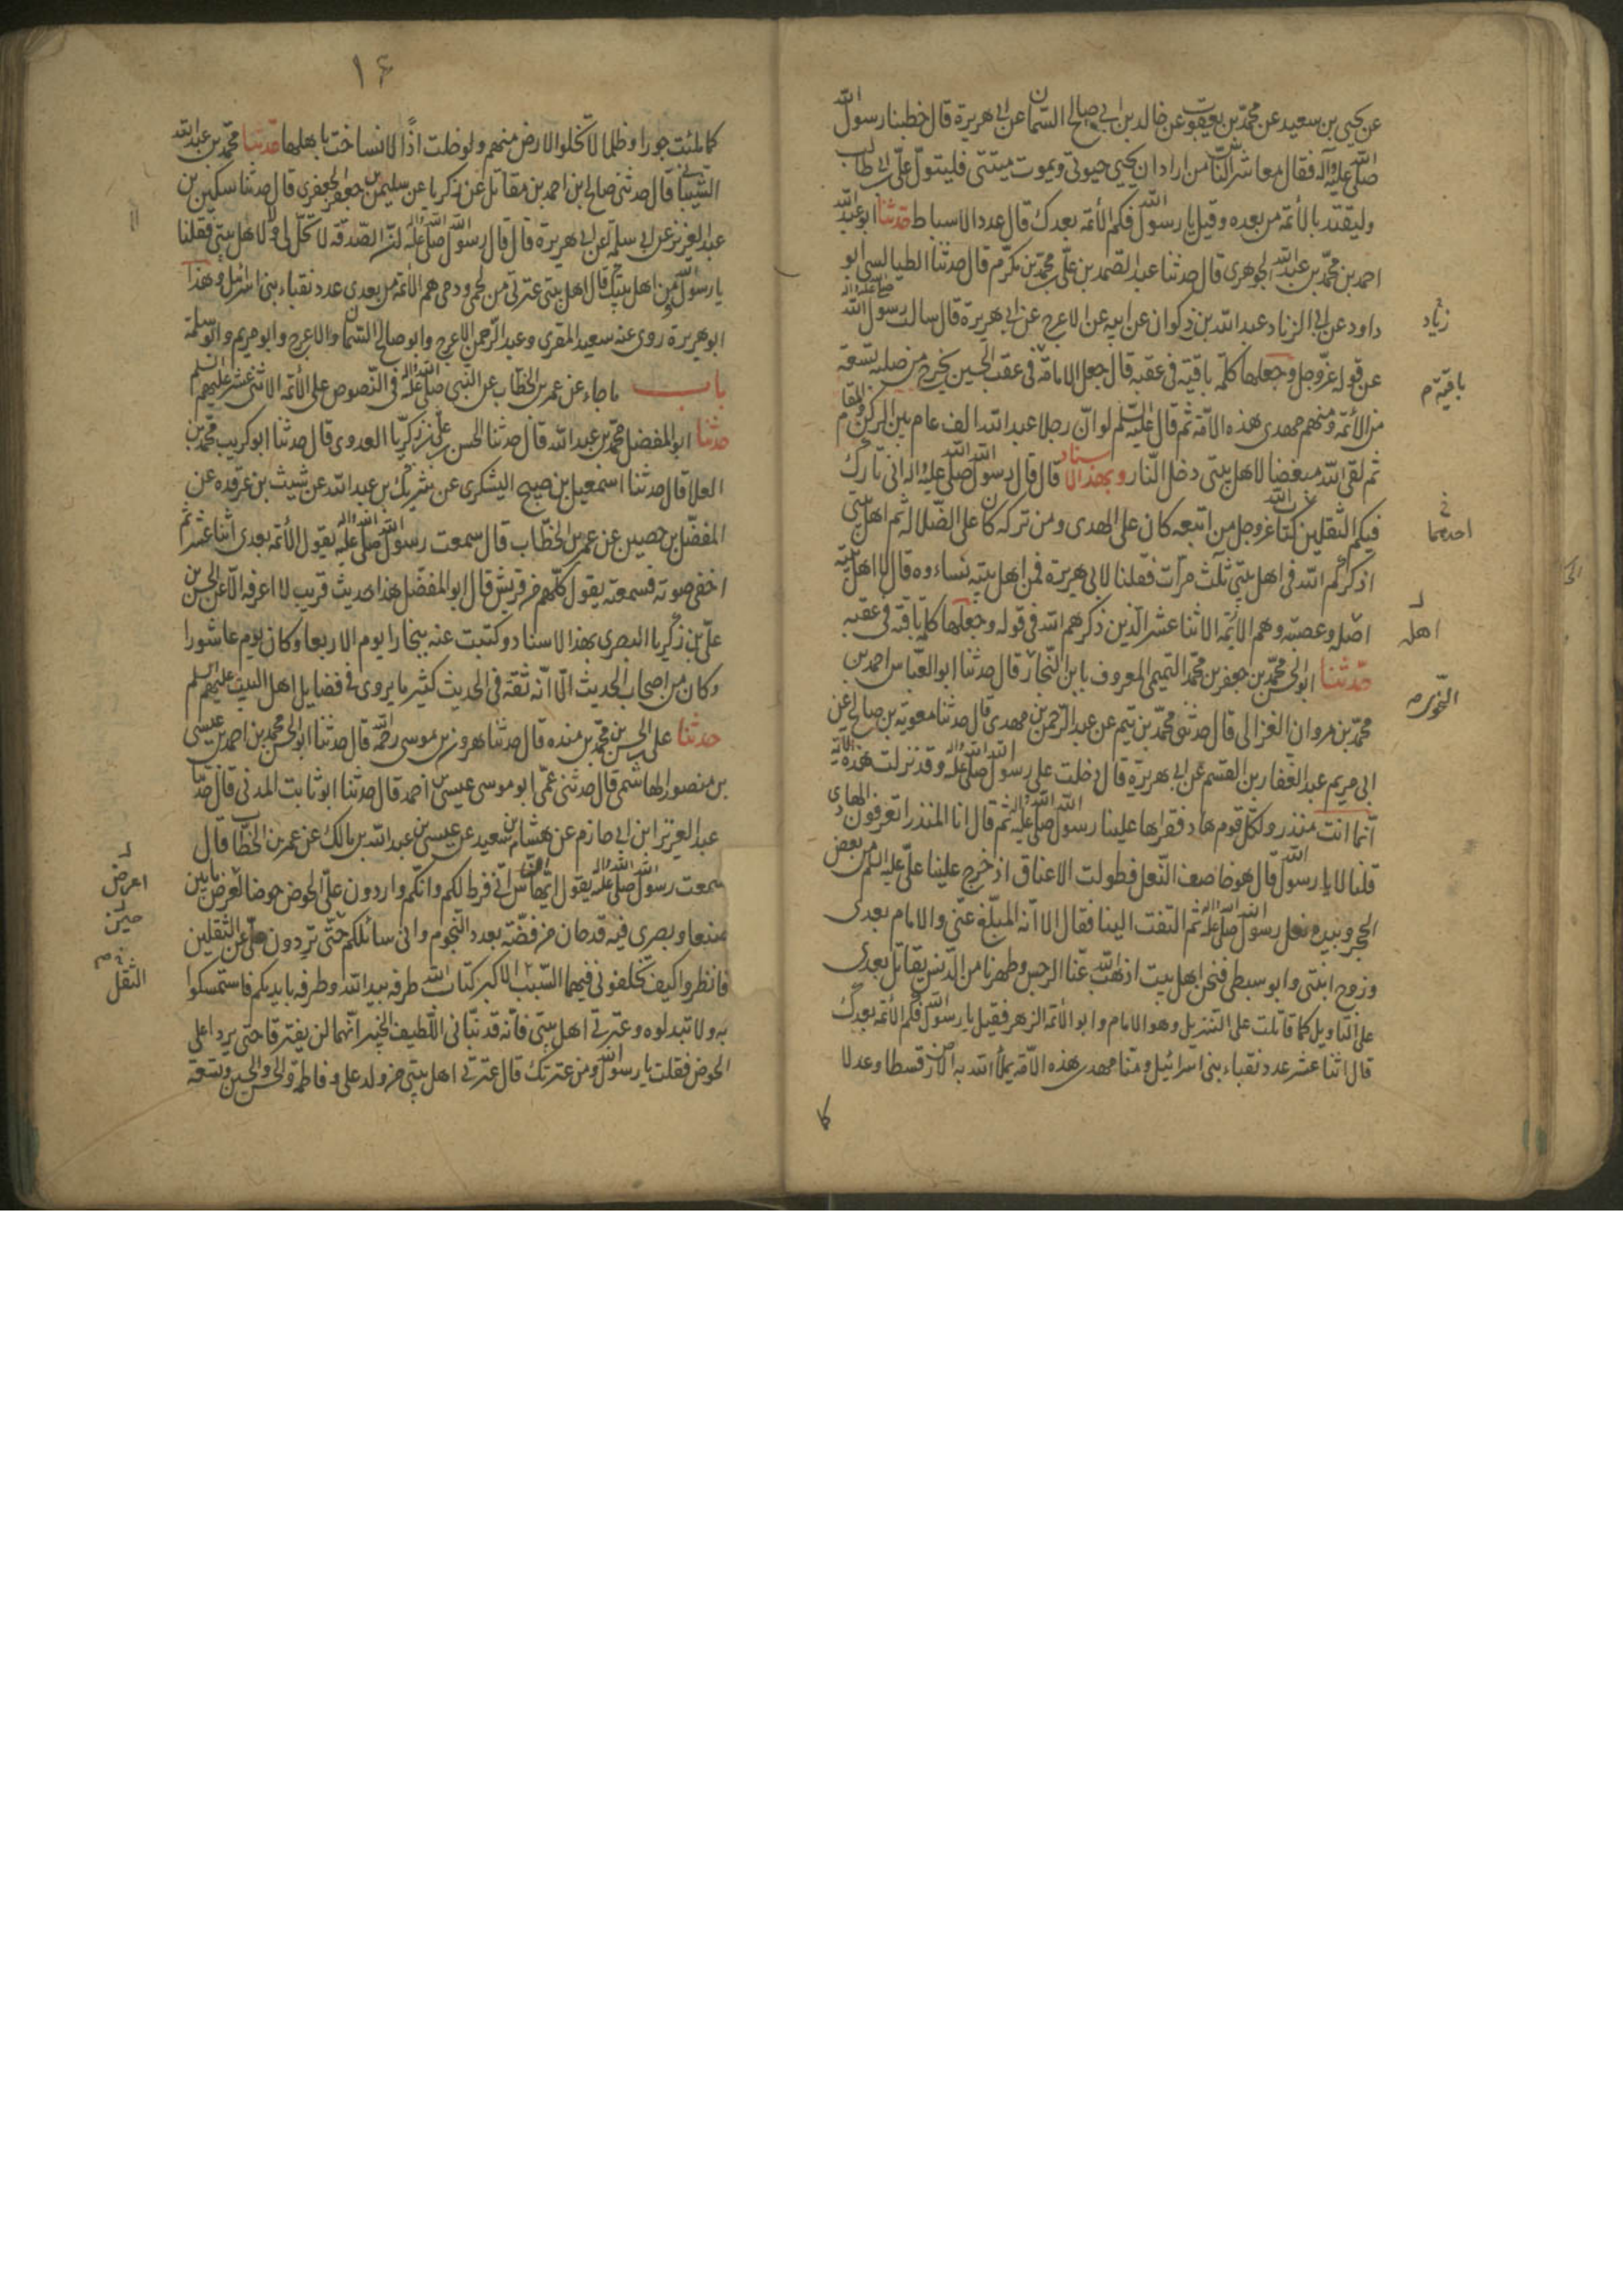 عن يحيى بن سعيد عن محمد بن يعقوب عن خالد بن ابى صالح السمان عن ابى هريرة قال خطبنا رسول الله
صلى الله عليه وآله فقال معاشر الناس من اراد ان يحيى حيوتى ويموت ميتتى فليتول على بن ابى طالب
وليقتد بالأئمة من بعده وقيل يا رسول الله فكم الأئمة بعدك قال عدد الاسباط حدثنا ابو عبد الله
احمد بن محمد بن عبد الله الجوهرى قال حدثنا عبد الصمد بن على بن محمد بن مكرم قال حدثنا الطيالسى ابو
داود عن ابى الزناد عبد الله بن ذكوان عن ابيه عن الاعرج عن ابى هريرة قال سالت رسول الله صلى الله عليه وآله
زناد
عن قوله عز وجل وجعلها كلمة باقية فى عقبه قال جعل الامامة فى عقب الحسين يخرج من صلبه تسعة
باقية م
من الأئمة ومنهم مهدى هذه الامة ثم قال عليه السلم لو ان رجلا عبد الله الف عام بين الركن والمقام
ثم لقى الله مبغضا لاهل بيتى دخل النار وبهذا الاسناد قال قال رسول الله صلى الله عليه وآله انى تارك
فيكم الثقلين كتاب الله عز وجل من اتبعه كان على الهدى ومن تركه كان على الضلالة ثم اهل بيتى
احدهما
اذكركم الله فى اهل بيتى ثلث مرات فقلنا لابى هريرة فمن اهل بيته نساءوه قال لا اهل بيته
اصله وعصبته وهم الأئمة الاثنا عشر الذين ذكرهم الله فى قوله وجعلها كلمة باقية فى عقبه
اهله
حدثنا ابو الحسن محمد بن جعفر بن محمد التميمى المعروف بابن النجار قال حدثنا ابو العباس احمد بن
النحوى
محمد بن مروان الغزالى قال حدثنى محمد بن تيم عن عبد الرحمن بن مهدى قال حدثنا معوية بن صالح عن
ابى مريم عبد الغفار بن القسم عن ابى هريرة قال دخلت على رسول الله صلى الله عليه وآله وقد نزلت هذه الآية
انما انت منذر ولكل قوم هاد فقراها علينا رسول الله صلى الله عليه وآله ثم قال انا المنذر اتعرفون الهادى
قلنا لا يا رسول الله قال هو خاصف النعل فطولت الاعناق اذ خرج علينا على عليه السلم من بعض
الحجر وبيده نعل رسول الله صلى الله عليه وآله ثم التفت الينا فقال الا انه المبلغ عنى والامام بعدى
وزوج ابنتى وابو سبطى فنحن اهل بيت اذهب الله عنا الرجس وطهرنا من الدنس يقاتل بعدى
على التاويل كما قاتلت على التنزيل وهو الامام وابو الأئمة الزهر فقيل يا رسول الله فكم الأئمة بعدك
قال اثنا عشر عدد نقباء بنى اسرائيل ومنا مهدى هذه الامة يملأ الله به الارض قسطا وعدلا
١۶
كما ملئت جورا وظلما لا تخلوا الارض منهم ولو خلت اذًا لانساخت باهلها حدثنا محمد بن عبد الله
الشيبانى قال حدثنى صالح بن احمد بن مقاتل عن زكريا عن سليمن بن جعفر الجعفرى قال حدثنا سكين بن
عبد العزيز عن ابى سلمة عن ابى هريرة قال قال رسول الله صلى الله عليه وآله ان الصدقة لا تحل لى ولا لاهل بيتى فقلنا
يا رسول الله من اهل بيتك قال اهل بيتى عترتى من لحمى ودمى هم الأئمة من بعدى عدد نقباء بنى اسرائيل وهذا
ابو هريرة روى عنه سعيد المقرى وعبد الرحمن الاعرج وابو صالح السمان والاعرج وابو مريم وابو سلمة
باب ما جاء عن عمر بن الخطاب عن النبى صلى الله عليه وآله فى النصوص على الأئمة الاثنى عشر عليهم السلم
حدثنا ابو المفضل محمد بن عبد الله قال حدثنا الحسن بن على بن زكريا العدوى قال حدثنا ابو كريب محمد بن
العلا قال حدثنا اسمعيل بن صبيح اليشكرى عن شريك بن عبد الله عن شبيث بن غرقده عن
المفضل بن حصين عن عمر بن الخطاب قال سمعت رسول الله صلى الله عليه وآله يقول الأئمة بعدى اثنا عشر ثم
اخفى صوته فسمعته يقول كلهم من قريش قال ابو المفضل هذا حديث قريب لا اعرفه الا عن الحسن بن
على بن زكريا البصرى بهذا الاسناد وكتبت عنه ببخارا يوم الاربعا وكان يوم عاشورا
وكان من اصحاب الحديث الا انه ثقة فى الحديث كثير ما يروى فى فضايل اهل البيت عليهم السلم
حدثنا على بن الحسن بن محمد بن منده قال حدثنا هرون بن موسى رحمه الله قال حدثنا ابو الحسن محمد بن احمد بن عيسى
بن منصور الهاشمى قال حدثنى عمى ابو موسى عيسى بن احمد قال حدثنا ابو ثابت المدنى قال حدثنا
عبد العزيز ابن ابى حازم عن هشام بن سعيد عن عيسى بن عبد الله بن مالك عن عمر بن الخطاب قال
سمعت رسول الله صلى الله عليه وآله يقول ايها الناس انى فرط لكم وانكم واردون على الحوض حوضا عرضه ما بين
اعرض
صنعا وبصرى فيه قدحان من فضة بعدد النجوم وانى سائلكم حتى تردون على عن الثقلين
حين
فانظروا كيف تخلفونى فيهما السبب الاكبر كتاب الله طرفه بيد الله وطرفه بايديكم فاستمسكوا
الثقل
به ولا تبدلوه وعترتى اهل بيتى فانه قد نبانى اللطيف الخبير انهما لن يفترقا حتى يردا على
الحوض فقلت يا رسول الله ومن عترتك قال عترتى اهل بيتى من ولد على وفاطمة والحسن والحسين وتسعة